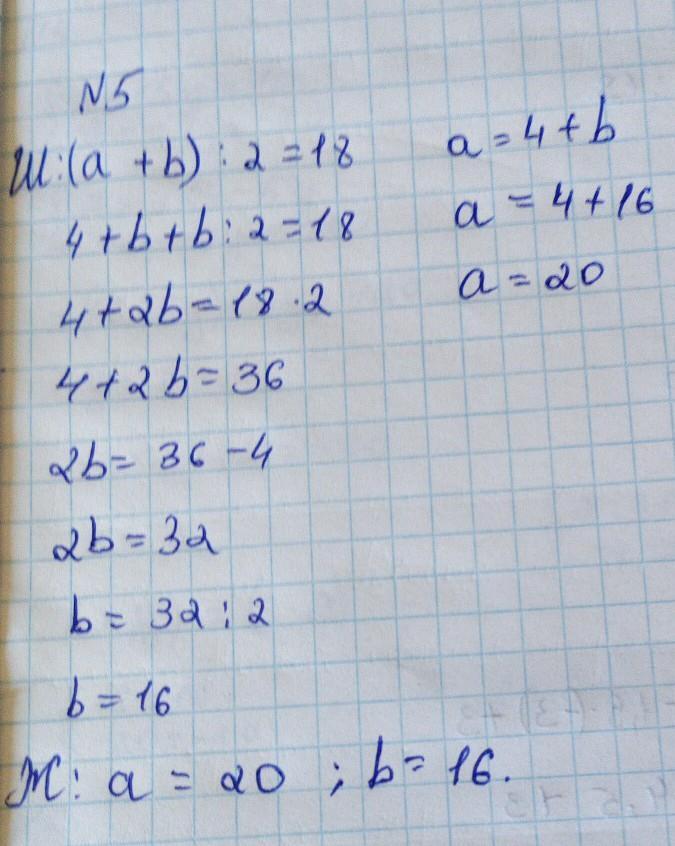 N5
Ш:(a + b) : 2 = 18
4 + b + b : 2 = 18
4 + 2b = 18 · 2
4 + 2b = 36
2b = 36 - 4
2b = 32
b = 32 : 2
b = 16
a = 4 + b
a = 4 + 16
a = 20
Ж: a = 20 ; b = 16.